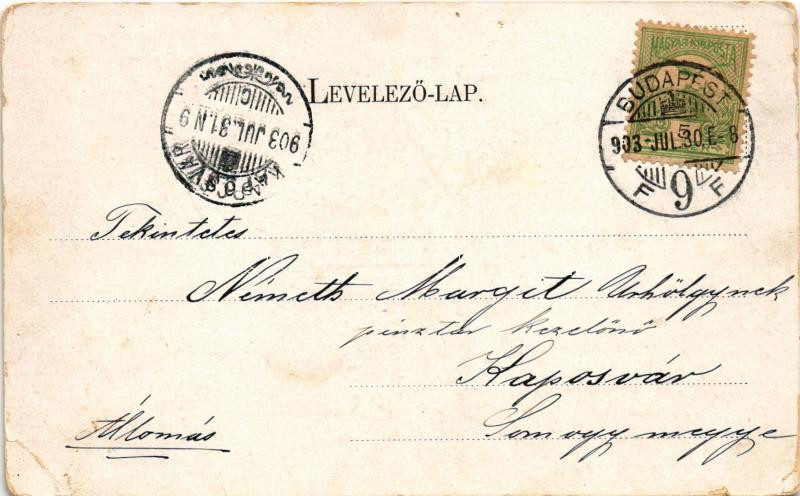 MAGYAR KIR. POSTA
5
BUDAPEST
903 JUL. 30. E-8
F 9 F
KAPOSVÁR
903 JUL. 31. N 9
LEVELEZŐ-LAP.
Tekintetes
Németh Margit Urhölgynek
pénztár kezelőnő
Kaposvár
Állomás
Somogy megye